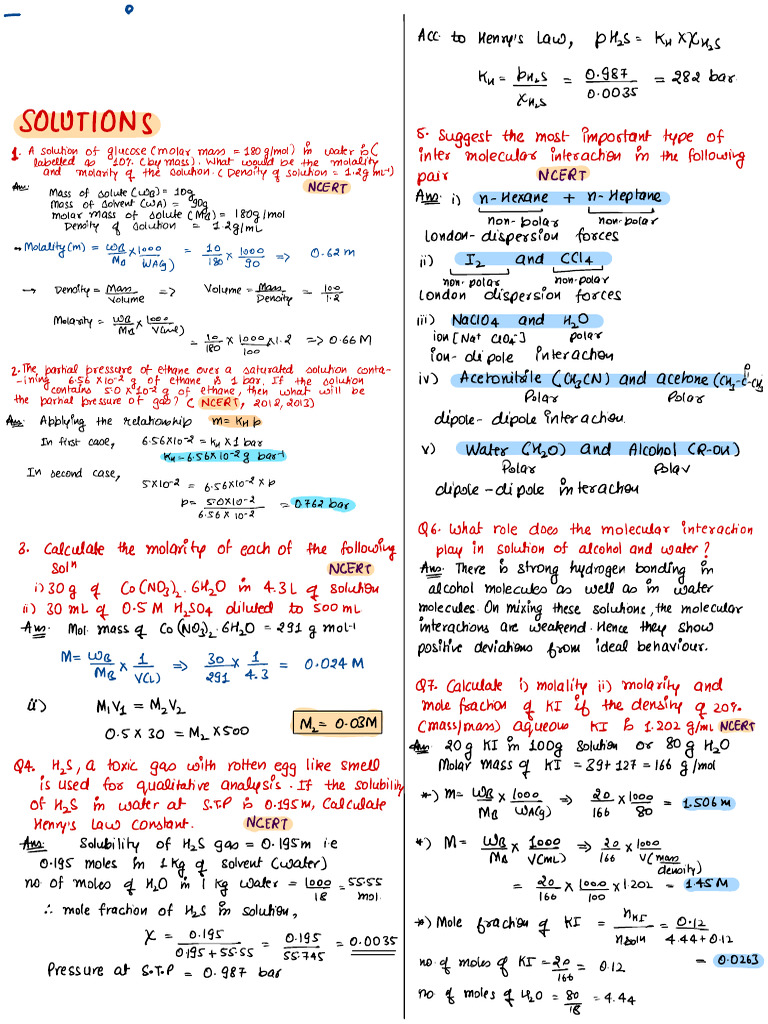 SOLUTIONS
1. A solution of glucose (molar mass = 180 g/mol) in water is (
labelled as 10% (by mass). What would be the molality
and molarity of the solution. (Density of solution = 1.2 g mL⁻¹)
NCERT
Ans:
Mass of solute (WB) = 10g
Mass of Solvent (WA) = 90g
molar mass of solute (MB) = 180g/mol
Density of solution = 1.2g/mL
→ Molality (m) = WB/MB × 1000/WA(g) = 10/180 × 1000/90 => 0.62 m
→ Density = Mass/Volume => Volume = Mass/Density = 100/1.2
Molarity = WB/MB × 1000/V(mL)
= 10/180 × 1000/100 × 1.2 => 0.66 M
2. The partial pressure of ethane over a saturated solution conta-
-ining 6.56 × 10-2 g of ethane is 1 bar. If the solution
contains 5.0 × 10-2 g of ethane, then what will be
the partial pressure of gas? (NCERT, 2012, 2013)
Ans: Applying the relationship m = KH p
In first case, 6.56×10-2 = KH × 1 bar
KH = 6.56×10-2 g bar-1
In second case, 5×10-2 = 6.56×10-2 × p
p = 5.0×10-2/6.56×10-2 = 0.762 bar
3. Calculate the molarity of each of the following
solⁿ
NCERT
i) 30 g of Co(NO3)2.6H2O in 4.3L of solution
ii) 30 mL of 0.5 M H2SO4 diluted to 500 mL
Ans: Mol. mass of Co(NO3)2.6H2O = 291 g mol-1
M = WB/MB × 1/V(L) => 30/291 × 1/4.3 = 0.024 M
ii) M1V1 = M2V2
0.5 × 30 = M2 × 500
M2 = 0.03M
Q4. H2S, a toxic gas with rotten egg like smell
is used for qualitative analysis. If the solubility
of H2S in water at S.T.P is 0.195m, Calculate
Henry's Law constant.
NCERT
Ans: Solubility of H2S gas = 0.195m i.e
0.195 moles in 1 Kg of solvent (water)
no of moles of H2O in 1 kg water = 1000/18 = 55.55 mol.
∴ mole fraction of H2S in solution,
χ = 0.195/0.195+55.55 = 0.195/55.745 = 0.0035
Pressure at S.T.P = 0.987 bar
Acc. to Henry's Law, pH2S = KH × χH2S
KH = pH2S/χH2S = 0.987/0.0035 = 282 bar.
5. Suggest the most important type of
inter molecular interaction in the following
pair
NCERT
Ans: i) n-Hexane + n-Heptane
non-polar non-polar
London-dispersion forces
ii) I2 and CCl4
non-polar non-polar
London dispersion forces
iii) NaClO4 and H2O
ion [Na+ ClO4-] polar
ion-dipole interaction
iv) Acetonitrile (CH3CN) and acetone (CH3-C-CH3
O
Polar Polar
dipole-dipole interaction.
v) Water (H2O) and Alcohol (R-OH)
Polar Polar
dipole-dipole interaction
Q6. What role does the molecular interaction
play in solution of alcohol and water?
Ans: There is strong hydrogen bonding in
alcohol molecules as well as in water
molecules. On mixing these solutions, the molecular
interactions are weakend. Hence they show
positive deviations from ideal behaviour.
Q7. Calculate i) molality ii) molarity and
mole fraction of KI if the density of 20%
(mass/mass) aqueous KI is 1.202 g/mL NCERT
Ans: 20g KI in 100g solution or 80 g H2O
Molar mass of KI = 39+127 = 166 g/mol
*) m = WB/MB × 1000/WA(g) => 20/166 × 1000/80 = 1.506 m
*) M = WB/MB × 1000/V(mL) => 20/166 × 1000/V(mass density)
= 20/166 × 1000/100 × 1.202 = 1.45 M
*) Mole fraction of KI = nKI/nsoln = 0.12/4.44+0.12
= 0.0263
no. of moles of KI = 20/166 = 0.12
no of moles of H2O = 80/18 = 4.44